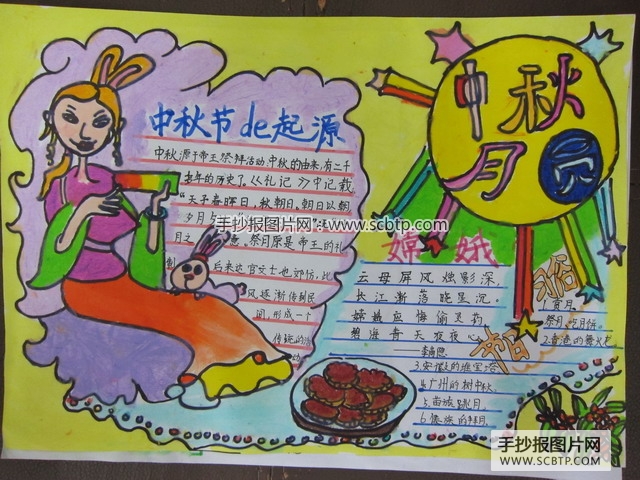 中秋节de起源
中秋源于帝王祭拜活动,中秋的由来,有二千
多年的历史了。《礼记》中记载
“天子春朝日,秋朝日。朝日以朝
夕月
月之
意。祭月原是帝王的礼
制
后来达官文士也效仿,比
风逐渐传到民
间,形成一个
传统的活
手抄报图片网 www.scbtp.com
中秋
月圆
嫦娥
云母屏风烛影深,
长江渐落晓星沉。
嫦娥应悔偷灵药
碧海青天夜夜心
——李商隐
俗
赏月
祭月,吃月饼
2.香港的舞火龙
3.安徽的堆宝塔
4.广州的树中秋
5.苗族跳月
6.傣族的拜月
手抄报图片网
WWW.SCBTP.COM